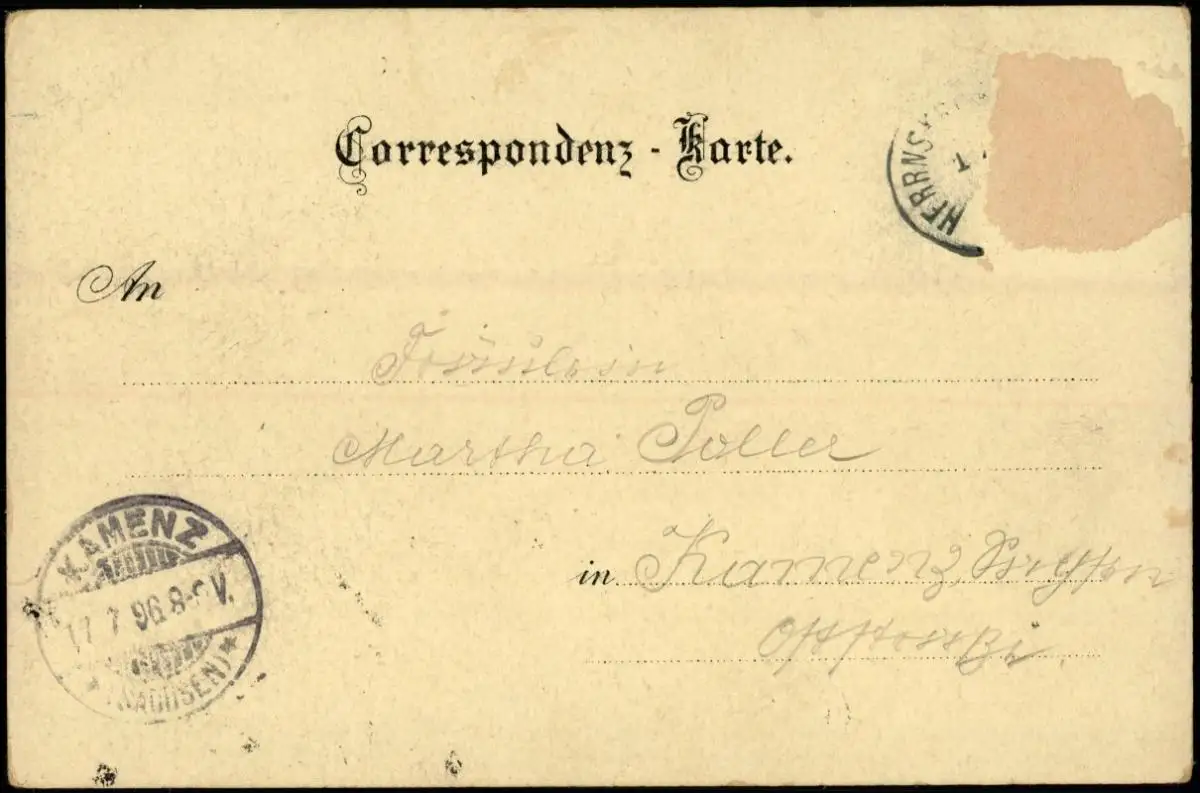 Correspondenz - Karte.
HERRNS
An
Fräulein
Martha Poller
in Kamenz, Sachsen
KAMENZ
7 96. 8- V.
(SACHSEN)